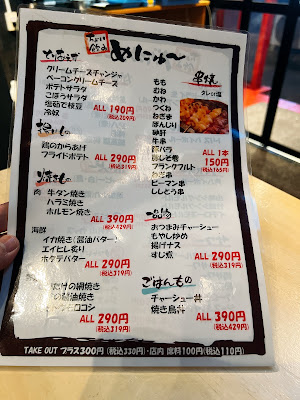 ちょい飲み
めにゅ〜
とりあえず
クリームチーズチャンジャ
ベーコンクリームチーズ
ポテトサラダ
ごぼうサラダ
塩茹で枝豆
冷奴
ALL 190円
(税込209円)
揚げもの
鶏のからあげ
フライドポテト
ALL 290円
(税込319円)
焼きもの
肉 牛タン焼き
ハラミ焼き
ホルモン焼き
ALL 390円
(税込429円)
海鮮
イカ焼き(醤油バター)
エイヒレ炙り
ホタテバター
ALL 290円
(税込319円)
の網焼き
の醤油焼き
ALL 290円
(税込319円)
串焼
タレor塩
もも
むね
かわ
つくね
ねぎま
ぼんじり
砂肝
牛串
豚バラ
鶏しそ巻
フランクフルト
ねぎ串
ピーマン串
ししとう串
ALL 1本
150円
(税込165円)
一品物
おつまみチャーシュー
もやし炒め
揚げナス
すじ煮
ALL 290円
(税込319円)
ごはんもの
チャーシュー丼
焼き鳥丼
ALL 390円
(税込429円)
TAKE OUT プラス300円(税込330円)・店内 席料100円(税込110円)